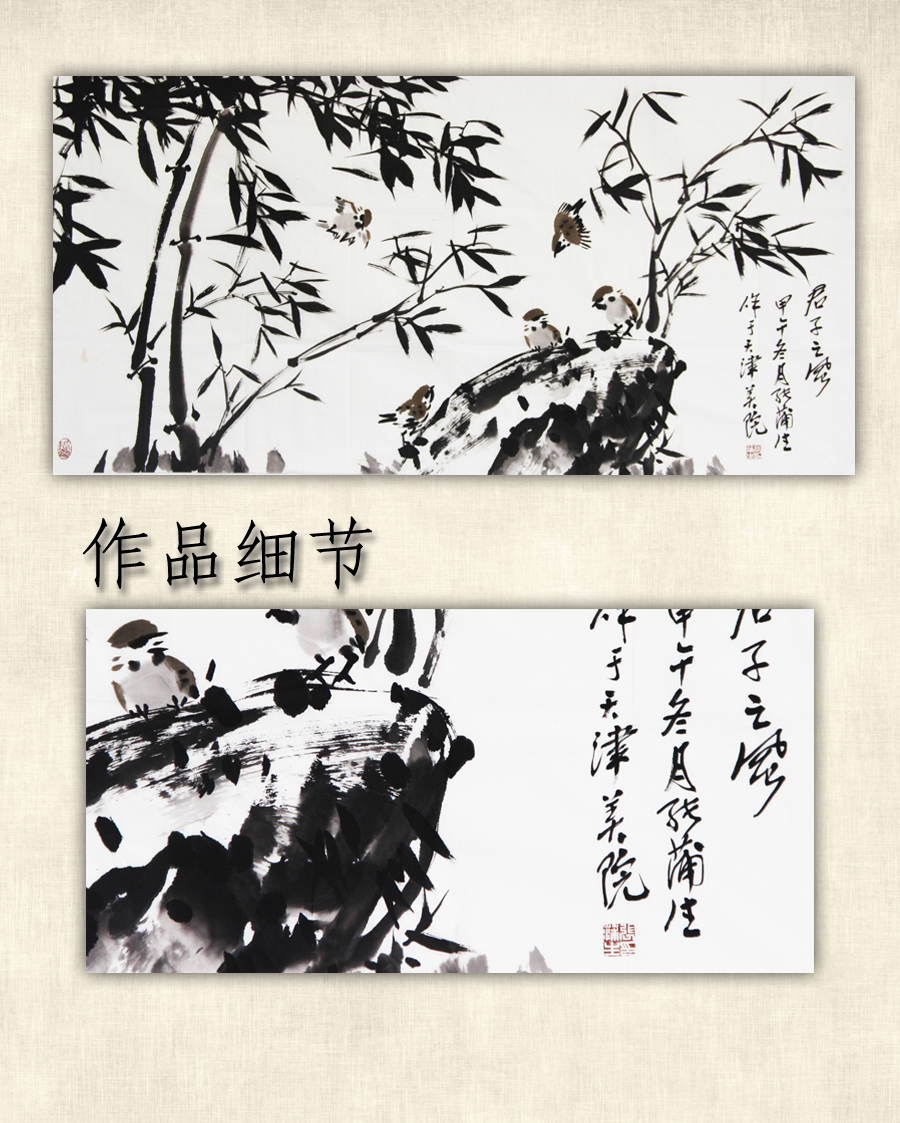 君子之风
甲午冬月张蒲生
作于天津美院
作品细节
君子之风
甲午冬月张蒲生
作于天津美院
张蒲生